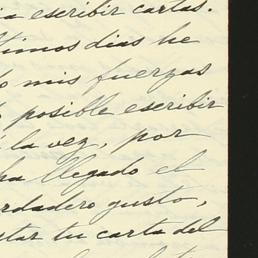 ia escribir cartas.
ltimos dias he
o mis fuerzas
posible escribir
la vez, por
ha llegado el
rdadero gusto,
star tu carta del